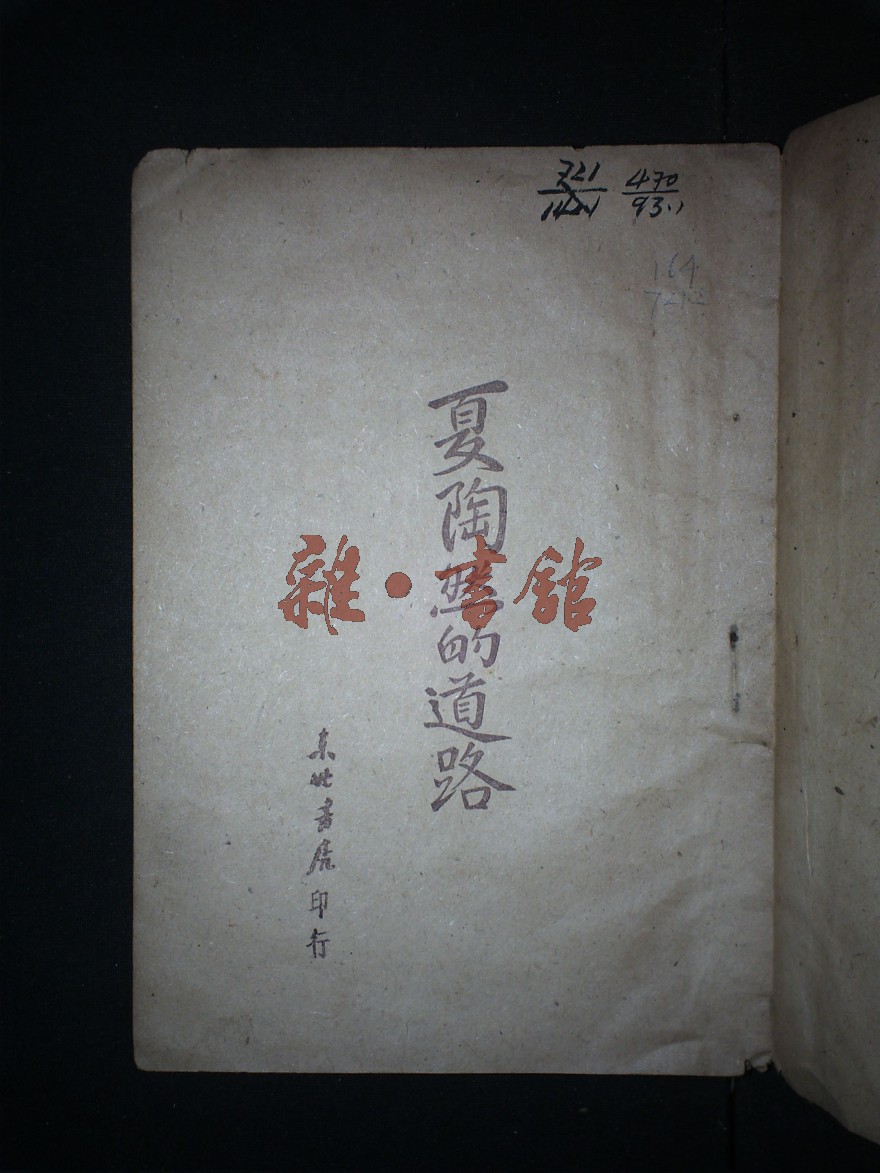 470
93.1
164
7212
夏陶然的道路
雜·書館
东北書店印行